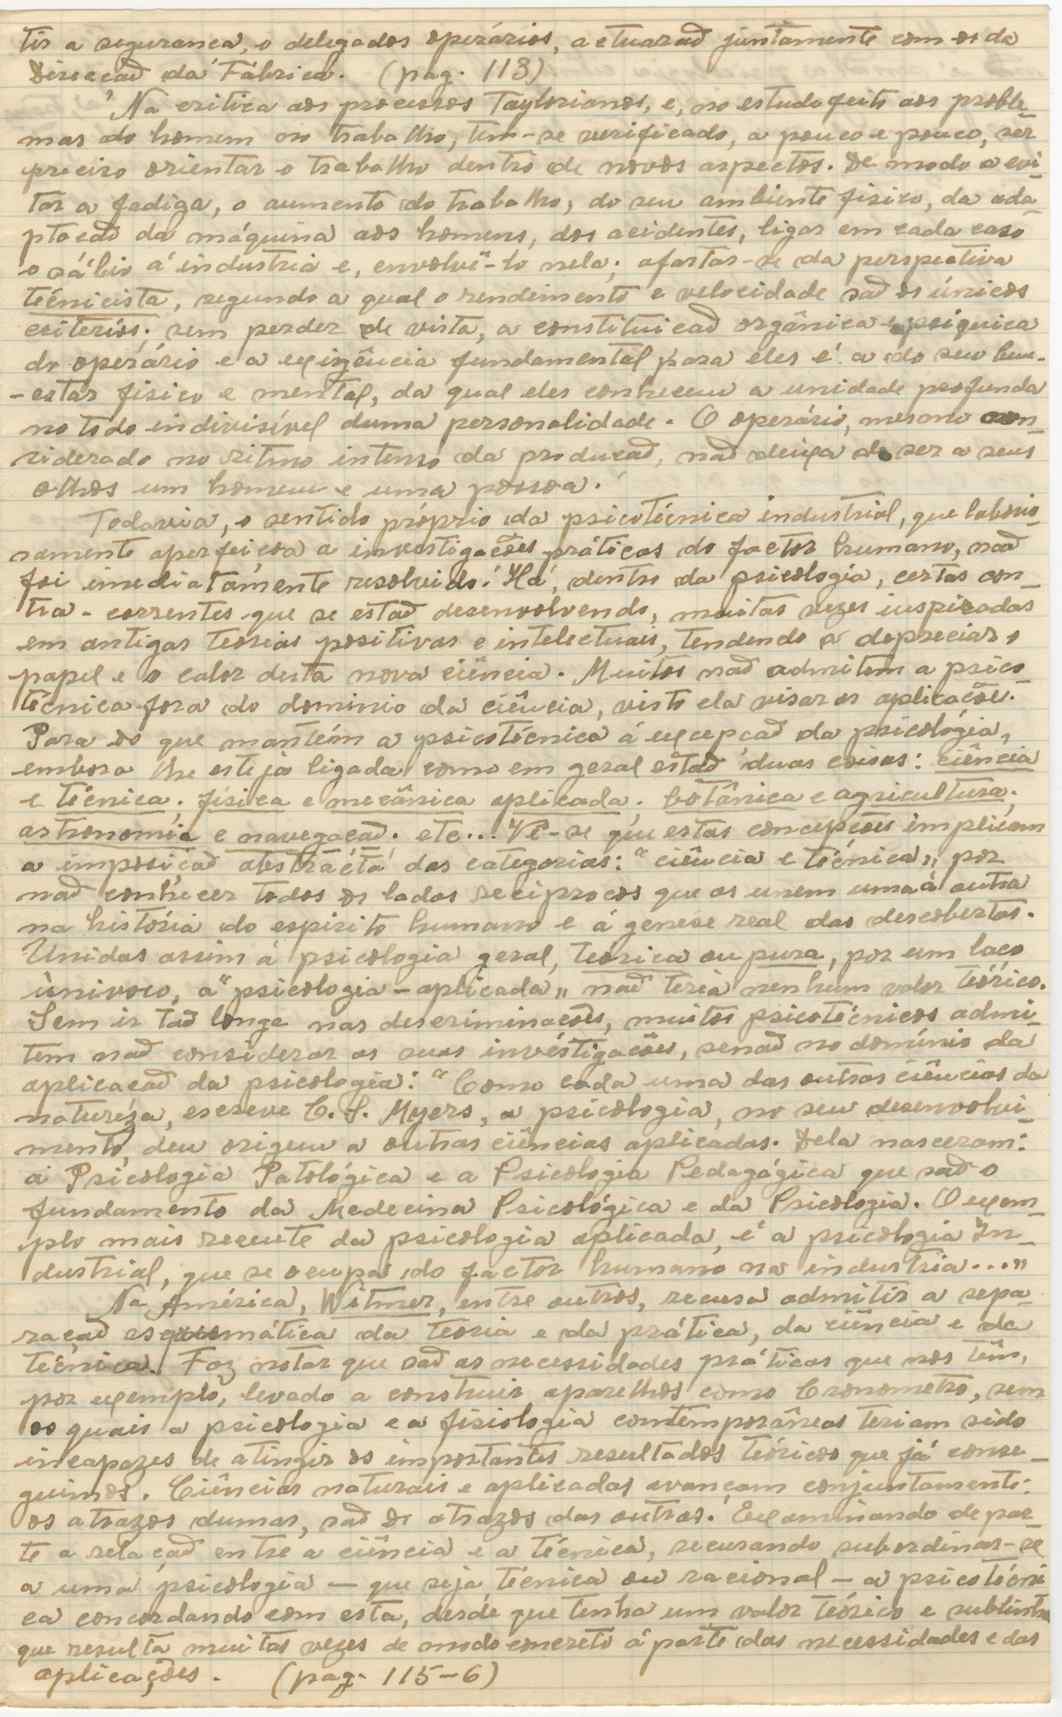 tir a seguranca, o delegados operários, actuaraõ juntamente com os da
Direcçaõ da Fábrica. (pag. 113)
Na critica aos processos Taylorianos, e, no estudo feito aos proble-
mas do homem no trabalho, tem-se verificado, a pouco e pouco, ser
preciso orientar o trabalho dentro de novos aspectos. De modo a evi-
tar a fadiga, o aumento do trabalho, do seu ambiente fisico, da ada-
ptacaõ da máquina aos homens, dos acidentes, ligar em cada caso
o sábio á industria e, envolvê-lo nela; afastar-se da perspectiva
técnicista, segundo a qual o rendimento e velocidade saõ os únicos
critérios; sem perder de vista, a constituicaõ orgânica e psiquica
do operário e a exigência fundamental para eles é a do seu bem-
-estar fisico e mental, da qual eles conhecem a unidade profunda
no tôdo indivisível duma personalidade. O operário, mesmo con-
siderado no ritmo intenso da produçaõ, naõ deixa de ser a seus
olhos um homem e uma pessoa.
Todavia, o sentido próprio da psicotécnica industrial, que laborio-
samente aperfeicoa a investigacões práticas do factor humano, naõ
foi imediatamente resolvido. Há, dentro da psicologia, certas con-
tra-correntes que se estaõ desenvolvendo, muitas vezes inspiradas
em antigas teorias positivas e intelectuais, tendendo a depreciar o
papel e o calor desta nova ciência. Muitos naõ admitem a psico-
técnica fora do dominio da ciência, visto ela visar as aplicacões.
Para os que mantém a psicotécnica á excepcaõ da psicológia,
embora lhe esteja ligada como em geral estaõ duas coisas: ciência
e técnica. física e mecânica aplicada. botânica e agricultura;
astronomia e navegaçaõ. etc... Vê-se que estas concepcões implicam
a imposiçaõ abstracta das categorias: "ciência e técnica", por
naõ conhecer todos os lados reciprocos que as unem uma á outra
na história do espirito humano e á genese real das descobertas.
Unidas assim á psicologia geral, teórica ou pura, por um laco
ùnivoco, a "psicologia-aplicada" naõ teria nenhum valor teórico.
Sem ir taõ longe nas descriminacões, muitos psicotécnicos admi-
tem naõ considerar as suas invéstigacões, senaõ no domínio da
aplicacaõ da psicologia: "Como cada uma das outras ciências da
naturéza, escreve C. S. Myers, a psicologia, no seu desenvolvi-
mento, deu origem a outras ciências aplicadas. Dela nasceram:
a Psicologia Patológica e a Psicologia Pedagógica que saõ o
fundamento da Medecina Psicológica e da Psicologia. O exem-
plo mais recente da psicologia aplicada, é a psicologia In-
dustrial, que se ocupa do factor humano na industria..."
Na América, Witmer, entre outros, recusa admitir a sepa-
raçaõ esquemática da teoria e da prática, da ciência e da
técnica. Faz notar que saõ as necessidades práticas que nos têm,
por exemplo, levado a construir aparelhos como Cronometro, sem
os quais a psicologia e a fisiologia contemporâneas teriam sido
incapazes de atingir os importantes resultados teóricos que já conse-
guimos. Ciências naturais e aplicadas avançam conjuntamente:
os atrazos dumas, saõ os atrazos das outras. Examinando de par-
te a relaçaõ entre a ciência e a técnica, recusando subordinar-se
a uma psicologia — que seja técnica ou racional — a psicotécni-
ca concordando com esta, desde que tenha um valor teórico e sublinha
que resulta muitas vezes de modo concreto á parte das necessidades e das
aplicações. (pag. 115-6)